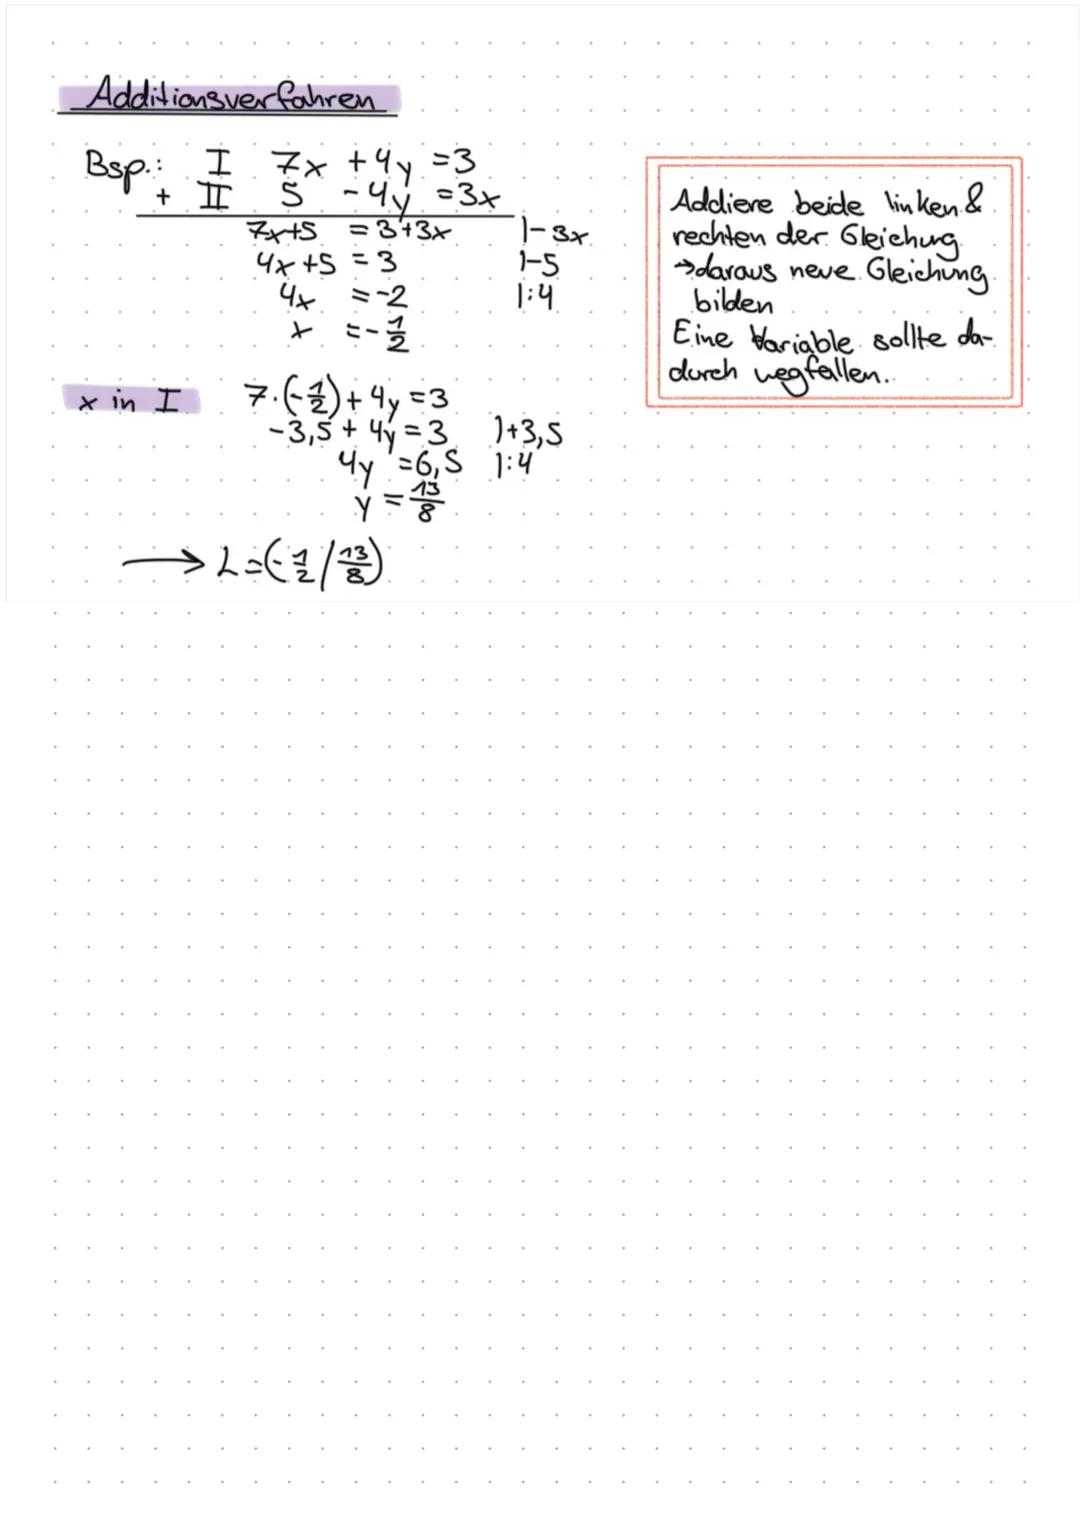 Additionsverfahren
Bsp.: I 7x +4y =3
+ II 5 -4y =3x
7x+5 =3+3x |-3x
4x+5 =3 |-5
4x =-2 |:4
x =-1/2
x in I 7·(-1/2)+4y=3
-3,5+4y=3 |+3,5
4y =6,5 |:4
y =13/8
→ L=(-1/2/13/8)
Addiere beide linken &
rechten der Gleichung
→daraus neue Gleichung
bilden
Eine Variable sollte da-
durch wegfallen.